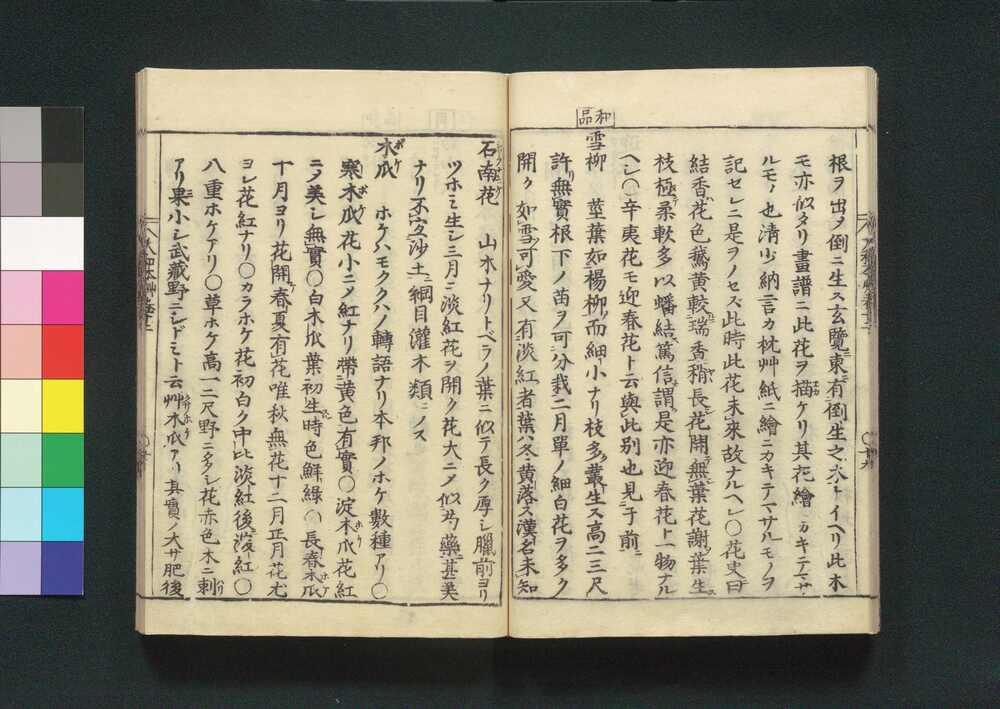 根ヲ出ヲ倒ニ生ス玄覽東有倒生之木トイヘリ此木
モ亦似タリ畫譜ニ此花ヲ描ケリ其花繪ニカキテマサ
ルモノ也清少納言カ枕艸紙ニ繪ニカキテマサルモノヲ
記セシニ是ヲノセズ此時此花未來故ナルヘシ〇花史曰
結香花色鵞黄較瑞香稍長花開無葉花謝葉生
枝極柔軟多以蟠結篤信謂是亦迎春花ト一物ナル
ヘシ〇辛夷花モ迎春花ト云與此別也見于前
和品
雪柳 莖葉如楊柳而細小ナリ枝多叢生ス高二三尺
許無實根下ノ苗ヲ可分栽二月單ノ細白花ヲ多ク
開ク如雪可愛又有淡紅者葉ハ冬黄落ス漢名未知
石南花 山木ナリトベラノ葉ニ似テ長ク厚シ臘前ヨリ
ツホミ生シ三月ニ淡紅花ヲ開ク花大ニメ似芍藥甚美
ナリ不宜沙土綱目灌木類ニノス
木瓜 ホケハモククハノ轉語ナリ本邦ノホケ數種アリ〇
寒木瓜花小ニメ紅ナリ帶黄色有實〇淀木瓜花紅
ニメ美シ無實〇白木瓜葉初生時色鮮綠〇長春木瓜
十月ヨリ花開春夏有花唯秋無花十二月正月花尤
ヨシ花紅ナリ〇カラホケ花初白ク中比淡紅後深紅〇
八重ホケアリ〇草ホケ高一二尺野ニ多シ花赤色木ニ刺
アリ果小シ武藏野ニシドミト云艸木瓜アリ其實ノ大サ肥後